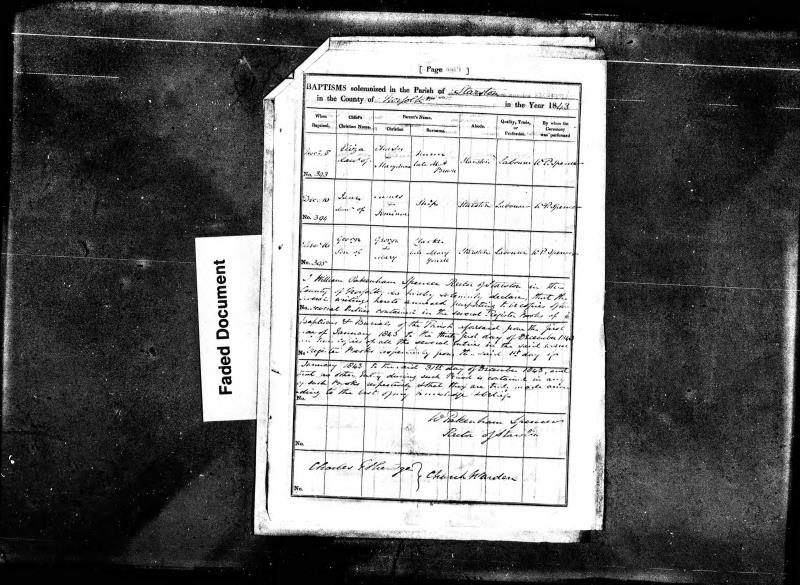 [ Page ]
BAPTISMS solemnized in the Parish of Starston
in the County of Norfolk in the Year 1843
When Baptized. Child's Christian Name. Parent's Name. Christian Surname. Abode. Quality, Trade, or Profession. By whom the Ceremony was performed
Eliza Starston Labourer W P Spencer
daur of
No. 393
Decr 10 Jane James Ship Starston Labourer W P Spencer
daur of & Jemima
No. 394
George George Clarke Starston Labourer W P Spencer
Son of & Mary late Mary
No. 395
I William Pakenham Spencer Rector of Starston in the
County of Norfolk do hereby solemnly declare, that the
several writings hereto annexed purporting to be copies of the
No. several Entries contained in the several Register Books of
Baptisms & Burials of the Parish aforesaid from the first
day of January 1843 to the thirty first day of December 1843
are true copies of all the several Entries in the said
No. Register Books respectively from the said 1st day of
January 1843 to the said 31st day of December 1843, and
that no other Entry during such Period is contained in any
of such Books respectively & that they are truly made accor
ding to the best of my knowledge & belief.
No.
W Pakenham Spencer
Rector of Starston
No.
Charles Etheridge } Church Warden
No.
Faded Document